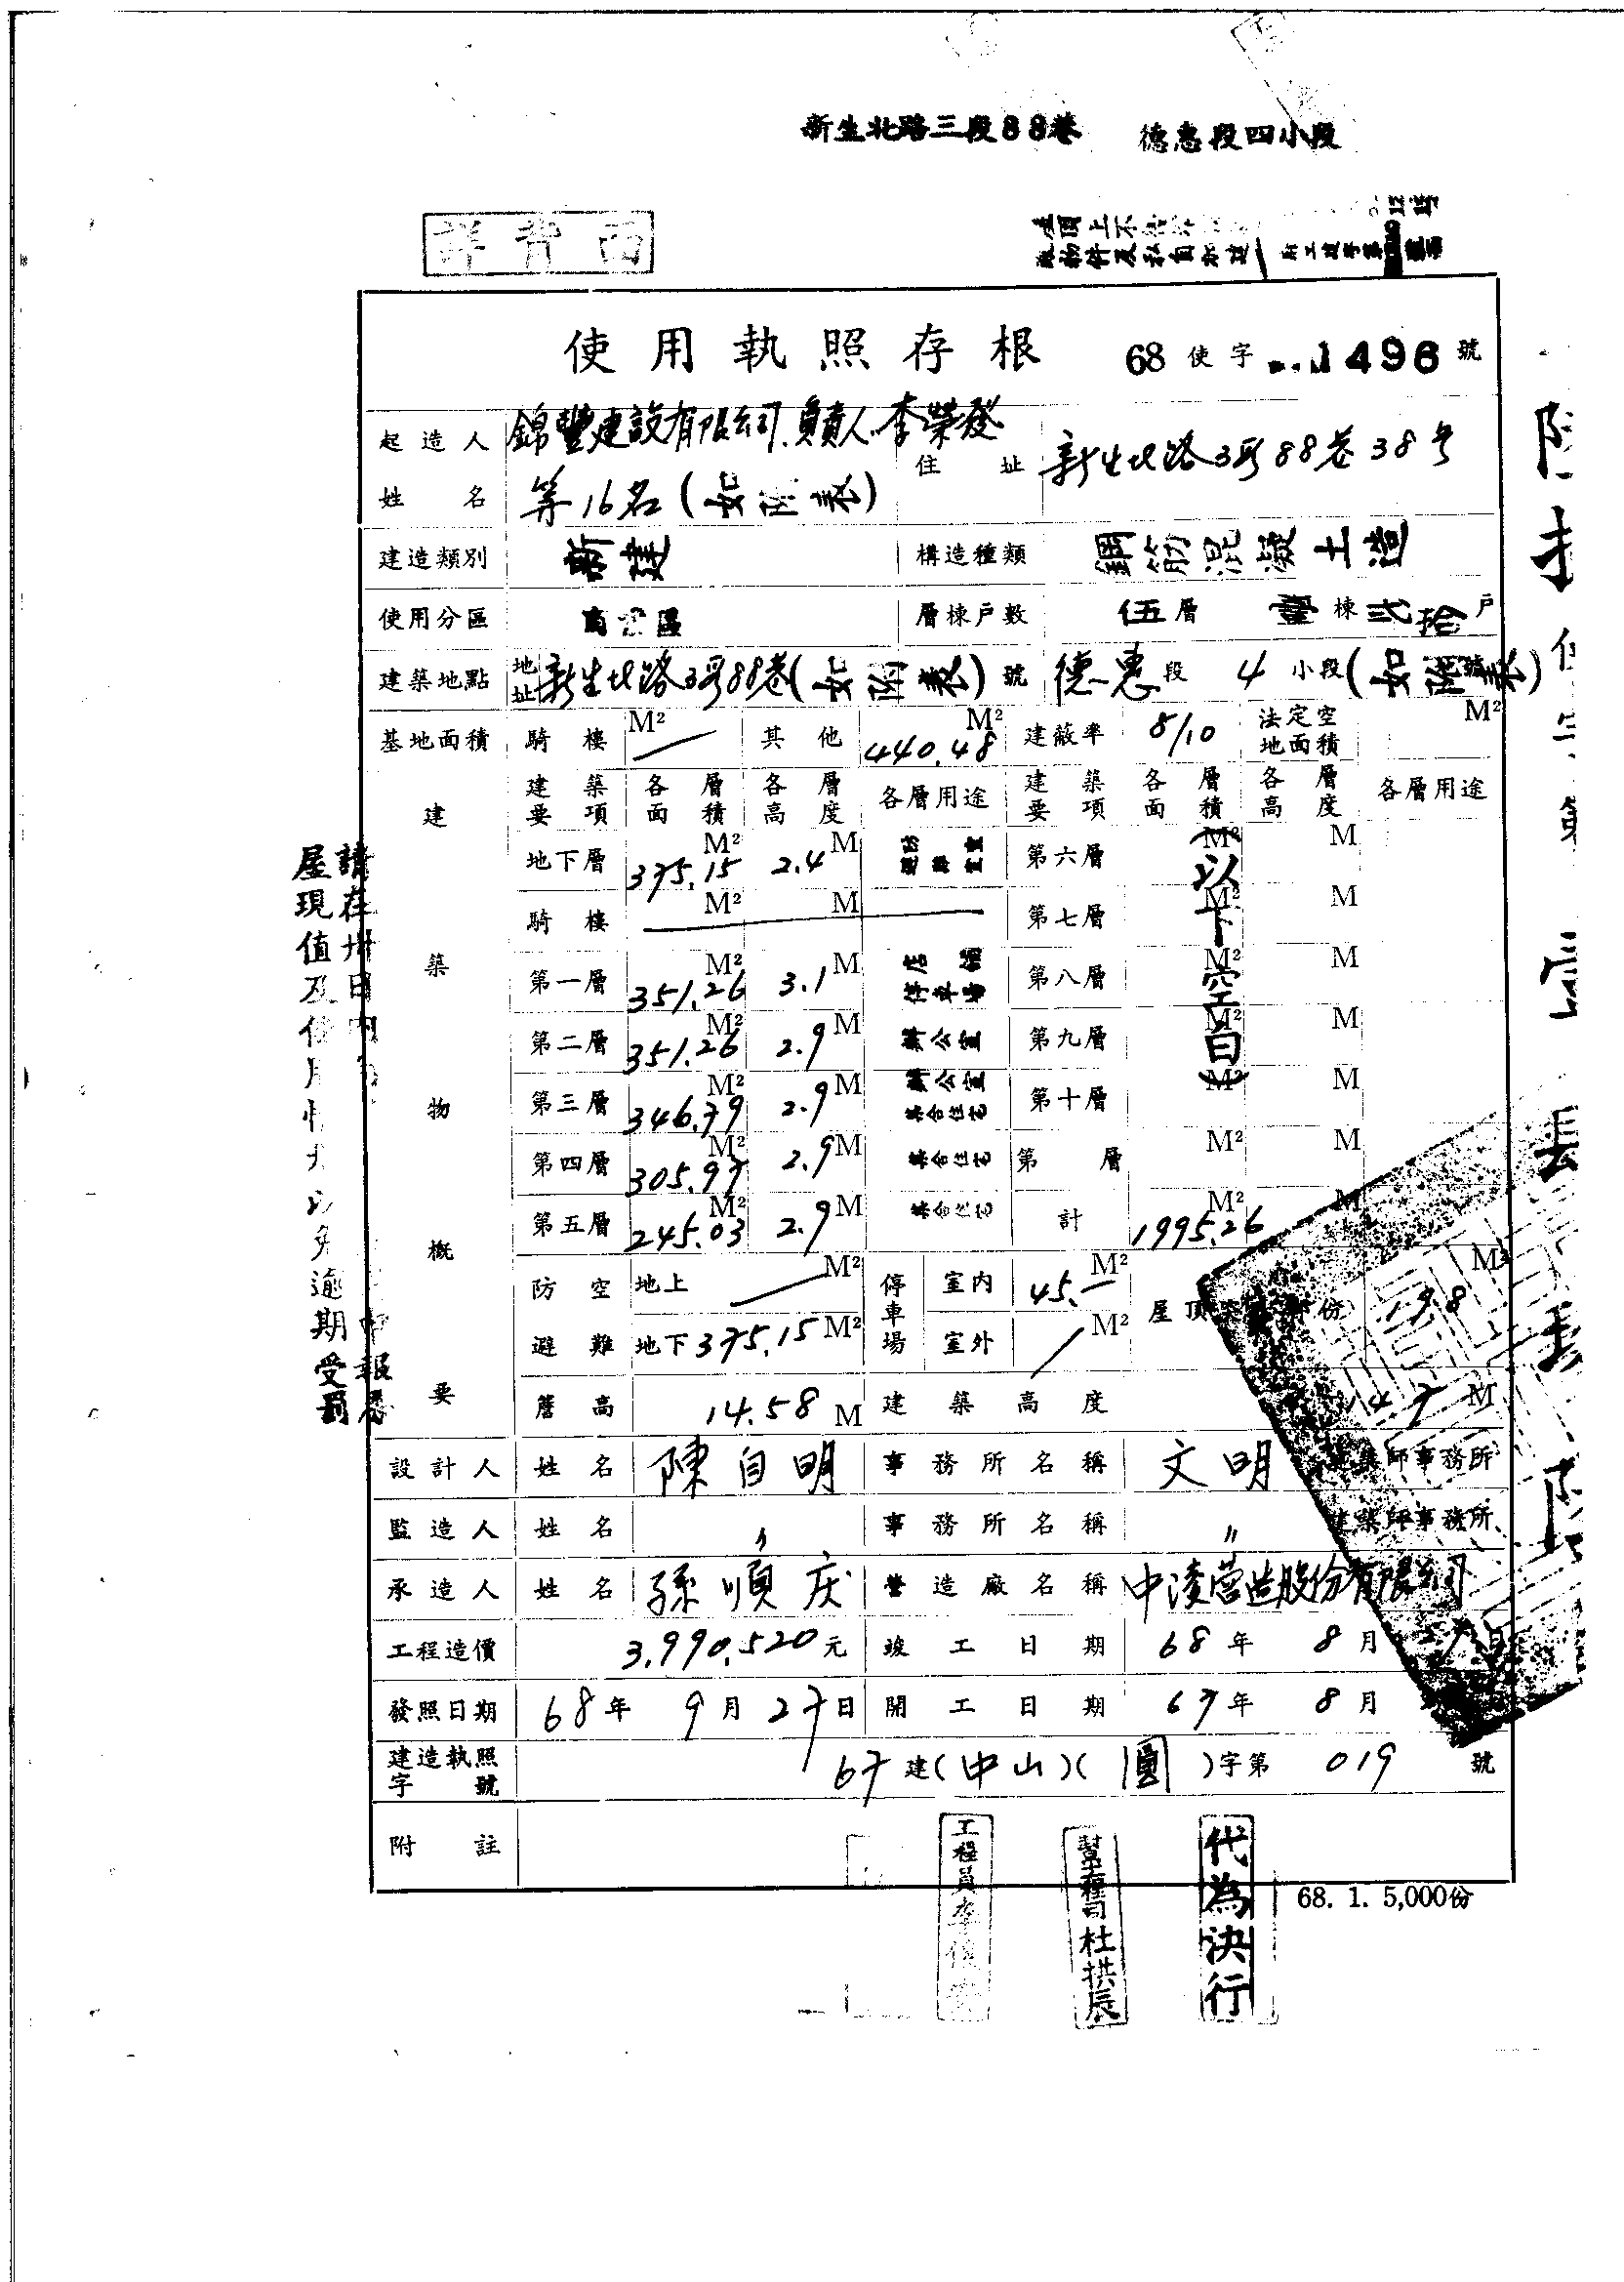 新生北路三段88巷 德惠段四小段
詳背面
使用執照存根 68使字 1496號
起造人姓名 錦豐建設有限公司 負責人 李榮發 等16名(如附表) 住址 新生北路3段88巷38号
建造類別 新建 構造種類 鋼筋混凝土造
使用分區 商業區 層棟戶數 伍層 壹棟 弍拾戶
建築地點 地址 新生北路3段88巷(如附表)號 德惠段 4小段(如附表)號
基地面積 騎樓 M² 其他 440.48 M² 建蔽率 8/10 法定空地面積 M²
建築物概要
建築要項 各層面積 各層高度 各層用途 建築要項 各層面積 各層高度 各層用途
地下層 375.15 M² 2.4 M 第六層 M² M
騎樓 M² M 第七層 M² M
第一層 351.26 M² 3.1 M 店舖 停車場 第八層 M² M
第二層 351.26 M² 2.9 M 辦公室 第九層 M² M
第三層 346.79 M² 2.9 M 辦公室 集合住宅 第十層 M² M
第四層 305.97 M² 2.9 M 集合住宅 第 層 M² M
第五層 245.03 M² 2.9 M 集合住宅 計 1995.26 M² M
(以下空白)
防空避難 地上 M² 停車場 室內 45.— M² 屋頂 份 M²
地下 375.15 M² 室外 M²
簷高 14.58 M 建築高度 M
設計人 姓名 陳自明 事務所名稱 文明 建築師事務所
監造人 姓名 〃 事務所名稱 〃 建築師事務所
承造人 姓名 孫順庆 營造廠名稱 中淩营造股份有限公司
工程造價 3,990,520元 竣工日期 68年 8月 日
發照日期 68年 9月 27日 開工日期 67年 8月
建造執照字號 67建(中山)(圓)字第 019 號
附註
68. 1. 5,000份
請在卅日內
申報
屋現值及使用
逾期受罰
工程員李
幫工程司杜拱辰
代為決行